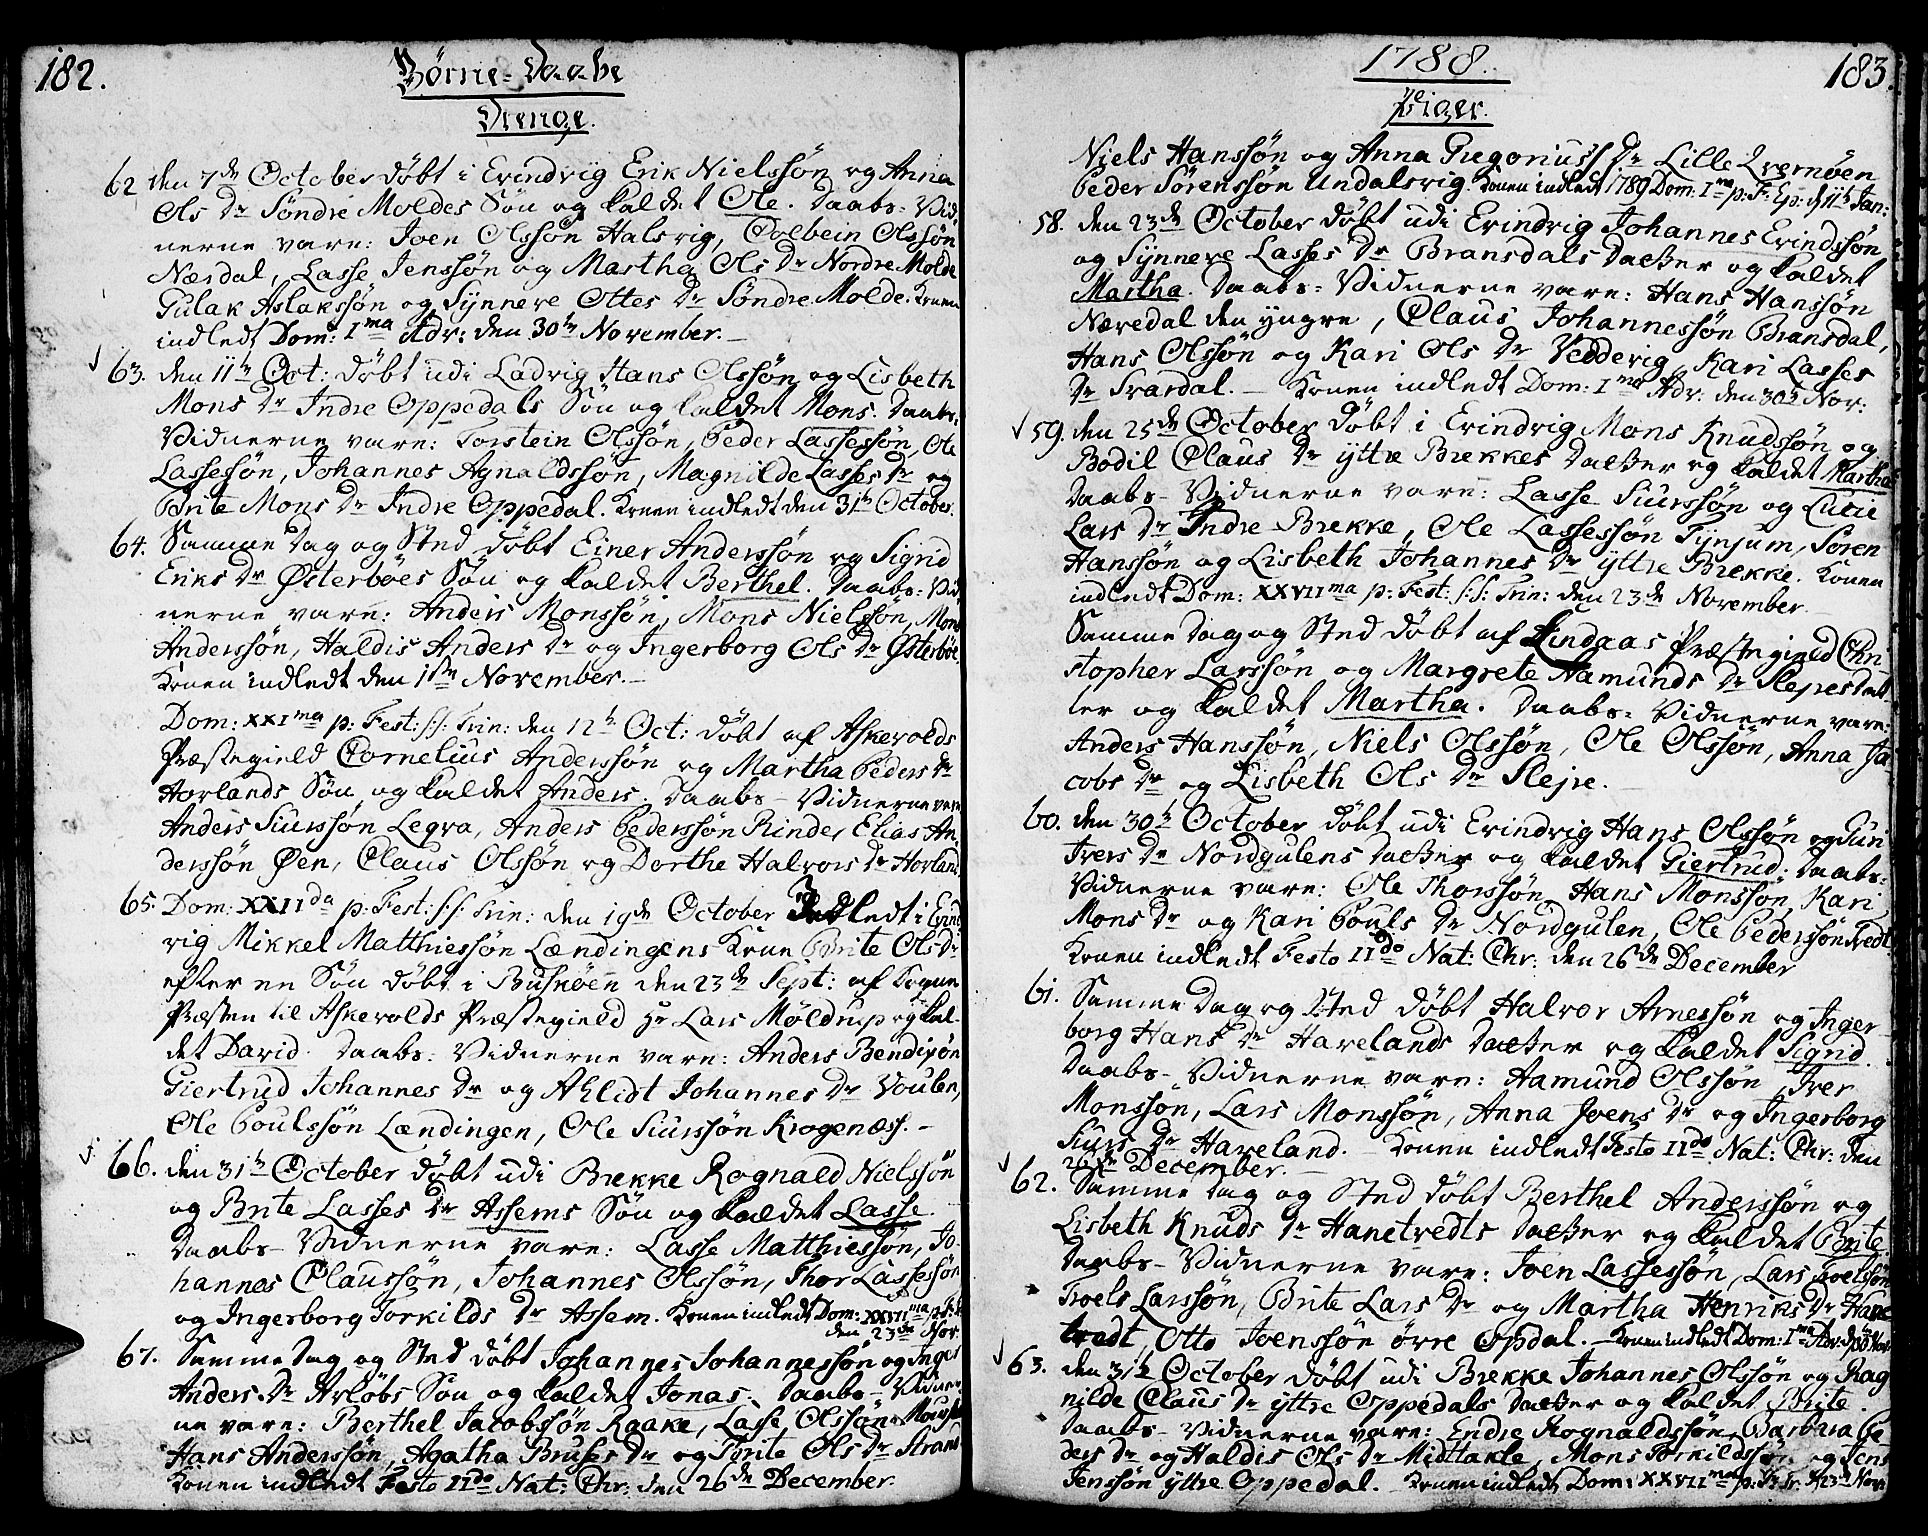 182.
Børne-Daabe
Drenge.
62 den 7de October døbt i Evindviig Erik Nielssøn og Anna
Ols Dr Søndre Moldes Søn og kaldet Ole. Daabs-Vid-
nerne vare: Joen Olssøn Halsvig, Colbein Olssøn
Nærdal, Lasse Jenssøn og Martha Ols Dr Nordre Molde
Gulak Aslakssøn og Synneve Ottes Dr Søndre Molde. Konen
indledt Dom: Ima Adv: den 30te November.
63. den 11te Oct: døbt udi Ladvig Hans Olssøn og Lisbeth
Mons Dr Indre Oppedals Søn og kaldet Mons. Daabs-
Vidnerne vare: Torstein Olssøn, Peder Lassessøn, Ole
Lassessøn, Johannes Agnaldssøn, Magnilde Lasses Dr og
Brite Mons Dr Indre Oppedal. Konen indledt den 31te October.
64. Samme Dag og Sted døbt Einer Anderssøn og Sigrid
Eriks Dr Østerbøes Søn og kaldet Berthel. Daabs-Vid
nerne vare: Anders Monssøn, Mons Nielssøn, Mons
Anderssøn, Haldis Anders Dr og Ingerborg Ols Dr Østerbøe.
Konen indledt den 1ste November.
Dom: XXIma p: Fest: S: S: Trin: den 12te Oct: døbt af Askevolds
Præstegield Cornelius Anderssøn og Martha Peders Dr
Horlands Søn og kaldet Anders. Daabs-Vidnerne vare
Anders Siurssøn Legra, Anders Pederssøn Rinde, Elias An-
derssøn Øen, Claus Olssøn og Dorthe Halvors Dr Horland
65. Dom: XXIIda p: Fest: S: S: Trin: den 19de October Indledt i Evind
vig Mikkel Matthiessøn Lændingens Kone Brite Ols Dr
efter en Søn døbt i Buskøen den 23de Sept: af Sogne
Præsten til Askevolds Præstegield Hr Lars Møldrup og kal-
det David. Daabs-Vidnerne vare: Anders Bendixøn
Giertrud Johannes Dr og Ahlidt Johannes Dr Voulen,
Ole Poulssøn Lændingen, Ole Siurssøn Krogenæss.
66. den 31te October døbt udi Brekke Rognald Nielssøn
og Brite Lasses Dr Assems Søn og kaldet Lasse.
Daabs-Vidnerne vare: Lasse Matthiessøn, Jo
hannes Claussøn, Johannes Olssøn, Thor Lassessøn
og Ingerborg Torkilds Dr Assem. Konen indledt Dom: XXVIIma p: F: S: T:
den 23de Nov.
67. Samme Dag og Sted døbt Johannes Johannessøn og Inger
Anders Dr Arløbs Søn og kaldet Jonas. Daabs-Vidner-
ne vare: Berthel Jacobssøn Raake, Lasse Olssøn
Hans Anderssøn, Agatha Bruses Dr og Brite Ols Dr Strand
Konen indledt Festo IIdo Nat: Chr: den 26de December.
1788.
183.
Piger.
Niels Hanssøn og Anna Gregorius Dr Lille Qvernøen
Peder Sørenssøn Undalsvig. Konen indledt 1789 Dom: Ima p: F: Ep: d 11te Jan:
58. den 23de October døbt udi Evindvig Johannes Evindssøn
og Synneve Lasses Dr Bransdals Datter og kaldet
Martha. Daabs-Vidnerne vare: Hans Hanssøn
Næredal den yngre, Claus Johannessøn Bransdal,
Hans Olssøn og Kari Ols Dr Vedvig, Kari Lasses
Dr Svardal. - Konen indledt Dom: Ima Adv: den 30te Nov:
59. den 25de October døbt i Evindvig Mons Knudssøn og
Bodil Claus Dr yttre Brekkes Datter og kaldet Martha
Daabs-Vidnerne vare: Lasse Siurssøn og Lucie
Lars Dr Indre Brekke, Ole Lassessøn Tynjum, Søren
Hanssøn og Lisbeth Johannes Dr yttre Brekke. Konen
indledt Dom: XXVIIma p: Fest: S: S: Trin: den 23de November.
Samme Dag og Sted døbt af Lindaas Præstegield Chri
stopher Larssøn og Margrete Aamunds Dr Slejres Dat
ter og kaldet Martha. Daabs-Vidnerne vare.
Anders Hanssøn, Niels Olssøn, Ole Olssøn, Anna Ja-
cobs Dr og Lisbeth Ols Dr Slejre.
60. den 30te October døbt udi Evindvig Hans Olssøn og Guri
Ivers Dr Nordgulens Datter og kaldet Giertrud. Daabs-
Vidnerne vare: Ole Thorssøn, Hans Monssøn, Kari
Mons Dr og Kari Pouls Dr Nordgulen, Ole Pederssøn Tvedt.
Konen indledt Festo IIdo Nat: Chr: den 26de December
61. Samme Dag og Sted døbt Halvor Arnessøn og Inger-
borg Hans Dr Havelands Datter og kaldet Sigrid.
Daabs-Vidnerne vare: Aamund Olssøn, Iver
Monssøn, Lars Monssøn, Anna Joens Dr og Ingerborg
Siurs Dr Haveland. - Konen indledt Festo IIdo Nat: Chr: den
26de December.
62. Samme Dag og Sted døbt Berthel Anderssøn og
Lisbeth Knuds Dr Hanetvedts Datter og kaldet Brite.
Daabs-Vidnerne vare: Joen Lassessøn, Lars Troelssøn
Troels Larssøn, Brite Lars Dr og Martha Henriks Dr Hane
tvedt, Otto Joenssøn øvre Opdal. - Konen indledt Dom: Ima Adv: d 30 Nov.
63. den 31te October døbt udi Brekke Johannes Olssøn og Rag
nilde Claus Dr yttre Oppedals Datter og kaldet Brite.
Daabs-Vidnerne vare: Endre Rognaldssøn, Barbara Pe-
ders Dr og Haldis Ols Dr Midtakle, Mons Torkildssøn og Jens
Jenssøn yttre Oppedal. Konen indledt Dom: XXVIIma p: F: Tr: d 23de Nov: